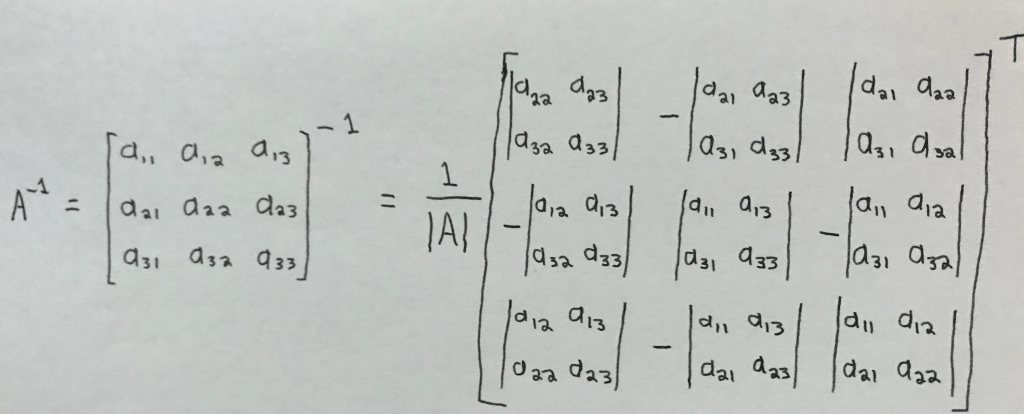 A⁻¹ = [a₁₁ a₁₂ a₁₃; a₂₁ a₂₂ a₂₃; a₃₁ a₃₂ a₃₃]⁻¹ = 1/|A| [
|a₂₂ a₂₃; a₃₂ a₃₃| −|a₂₁ a₂₃; a₃₁ a₃₃| |a₂₁ a₂₂; a₃₁ a₃₂|
−|a₁₂ a₁₃; a₃₂ a₃₃| |a₁₁ a₁₃; a₃₁ a₃₃| −|a₁₁ a₁₂; a₃₁ a₃₂|
|a₁₂ a₁₃; a₂₂ a₂₃| −|a₁₁ a₁₃; a₂₁ a₂₃| |a₁₁ a₁₂; a₂₁ a₂₂|
]ᵀ